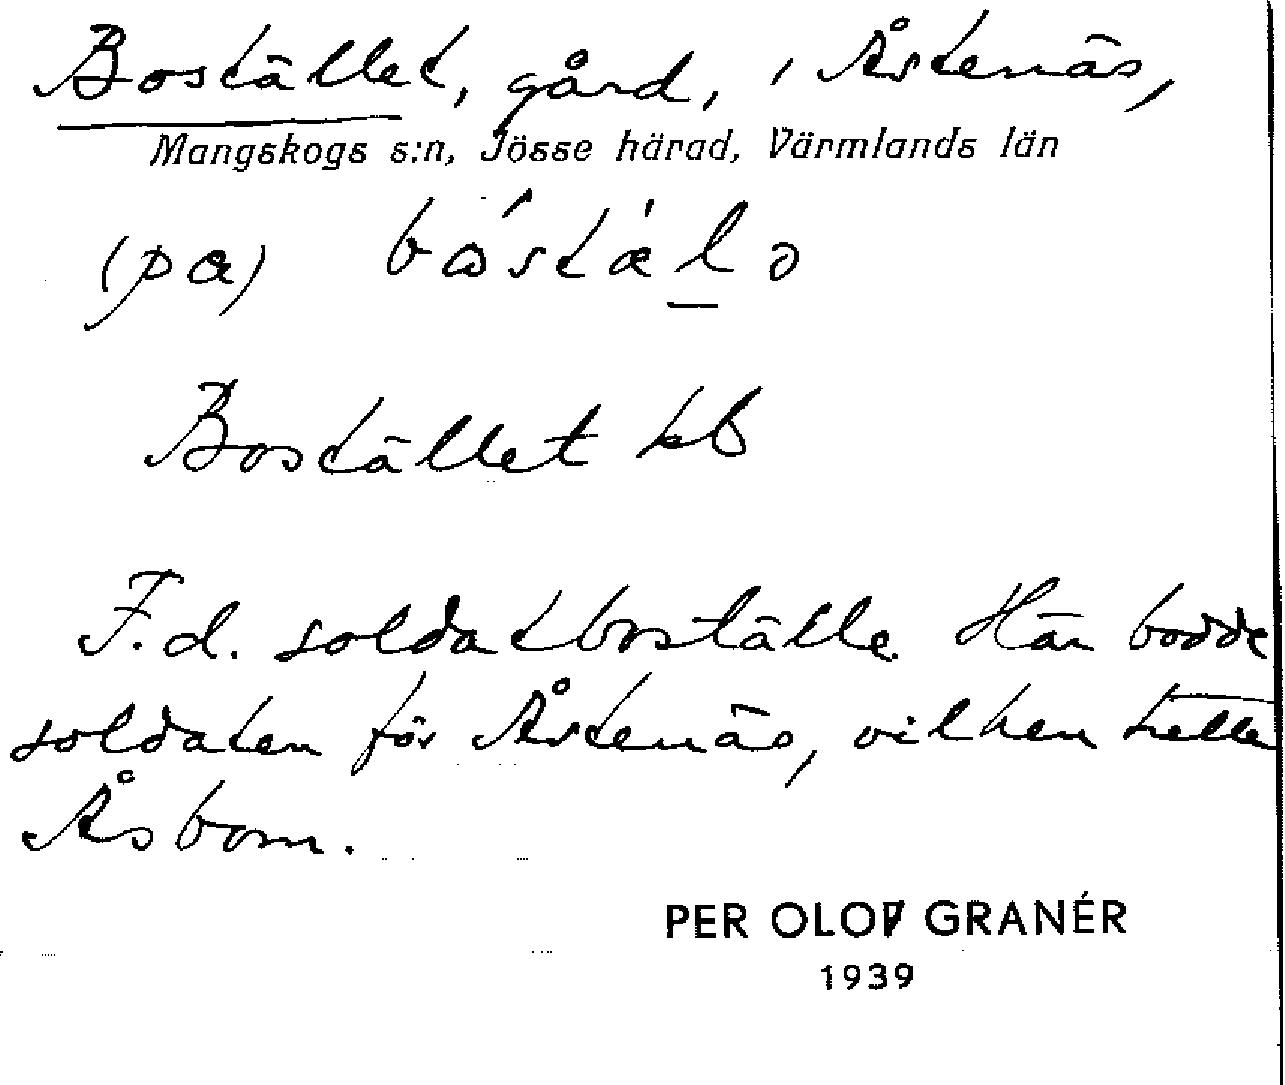 Bostället, gård, i Årtenäs,
Mangskogs s:n, Jösse härad, Värmlands län
(pa) bɷstæ̀lə
Bostället kb
F.d. soldatboställe. Här bodde
soldaten för Årtenäs, vilken hette
Åsbom.
PER OLOF GRANÉR
1939